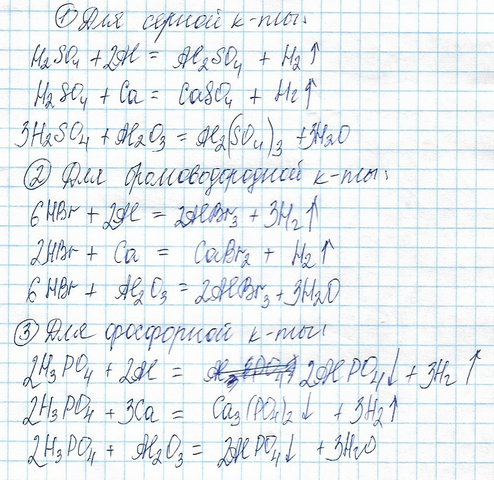 ① Для серной к-ты:
H₂SO₄ + 2Al = Al₂SO₄ + H₂↑
H₂SO₄ + Ca = CaSO₄ + H₂↑
3H₂SO₄ + Al₂O₃ = Al₂(SO₄)₃ + 3H₂O
② Для бромоводородной к-ты:
6HBr + 2Al = 2AlBr₃ + 3H₂↑
2HBr + Ca = CaBr₂ + H₂↑
6HBr + Al₂O₃ = 2AlBr₃ + 3H₂O
③ Для фосфорной к-ты:
2H₃PO₄ + 2Al = 2AlPO₄↓ + 3H₂↑
2H₃PO₄ + 3Ca = Ca₃(PO₄)₂↓ + 3H₂↑
2H₃PO₄ + Al₂O₃ = 2AlPO₄↓ + 3H₂O